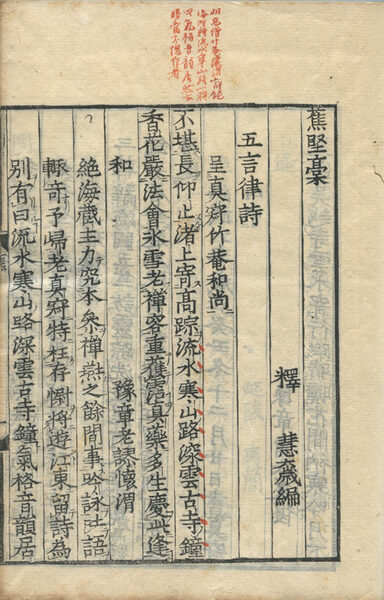 蕉堅稾
釋 慧奯編
五言律詩
呈真寂竹菴和尚
不堪長仰止渚上寄高踪流水寒山路深雲古寺鐘
香花嚴法會氷雪老禪容重獲霑真藥多生慶此逢
和 豫章老懷渭
絶海蔵主力究本參禪燕之餘間事吟詠吐語
輙奇予歸老真寂特枉存慰將遊江東留詩為
別有曰流水寒山路深雲古寺鐘氣格音韻居